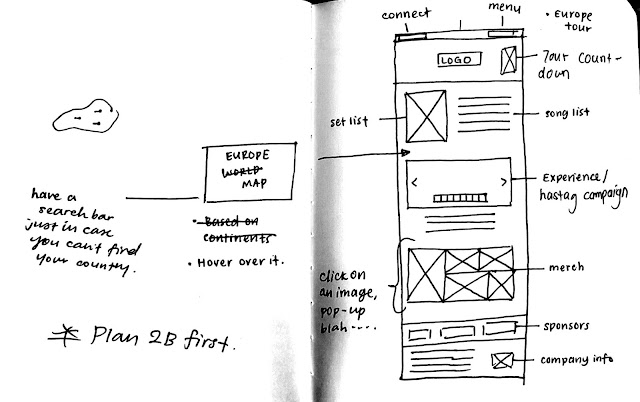 EUROPE
WORLD
MAP
have a
search bar
just in case
you can't find
your country.
• Based on
continents
• Hover over it.
* Plan 2B first.
connect
menu
• Europe
tour
LOGO
Tour Count-
down
set list
song list
< >
Experience/
hastag campaign
click on
an image,
pop-up
blah ----.
merch
sponsors
company info